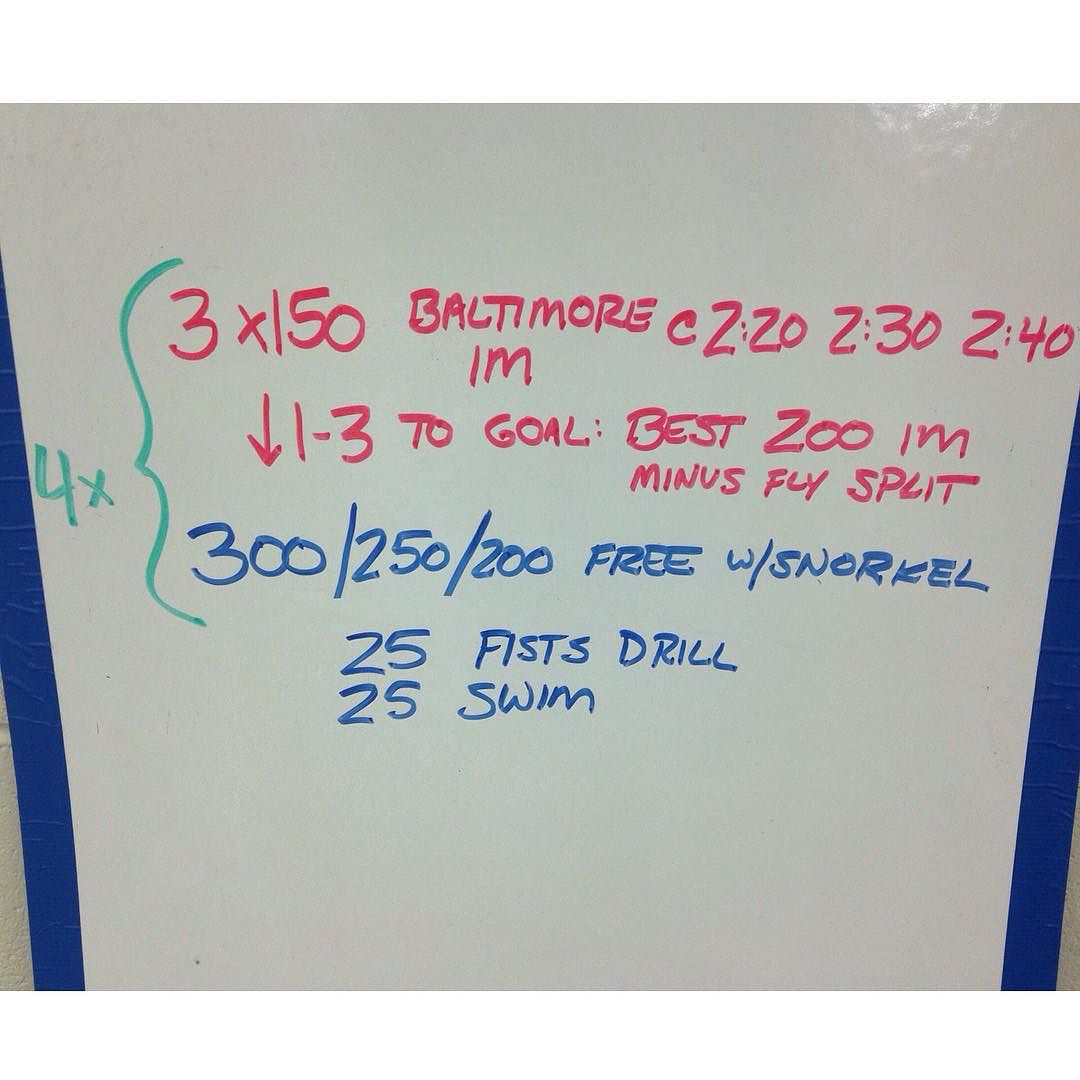 4x
3 x150 BALTIMORE IM c 2:20 2:30 2:40
↓1-3 TO GOAL: BEST 200 IM
MINUS FLY SPLIT
300/250/200 FREE W/SNORKEL
25 FISTS DRILL
25 SWIM